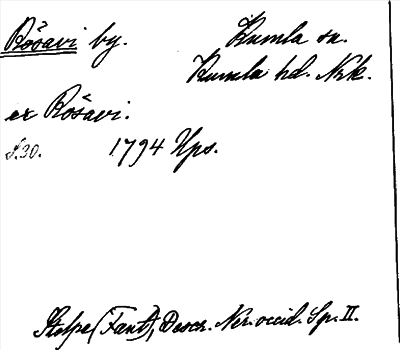 Rösavi by. Kumla sn.
Kumla hd. Nrk.
ex Rösavi.
S.30. 1794 Ups.
Stolpe (Fant), Descr. Ner. occid. Sp. II.